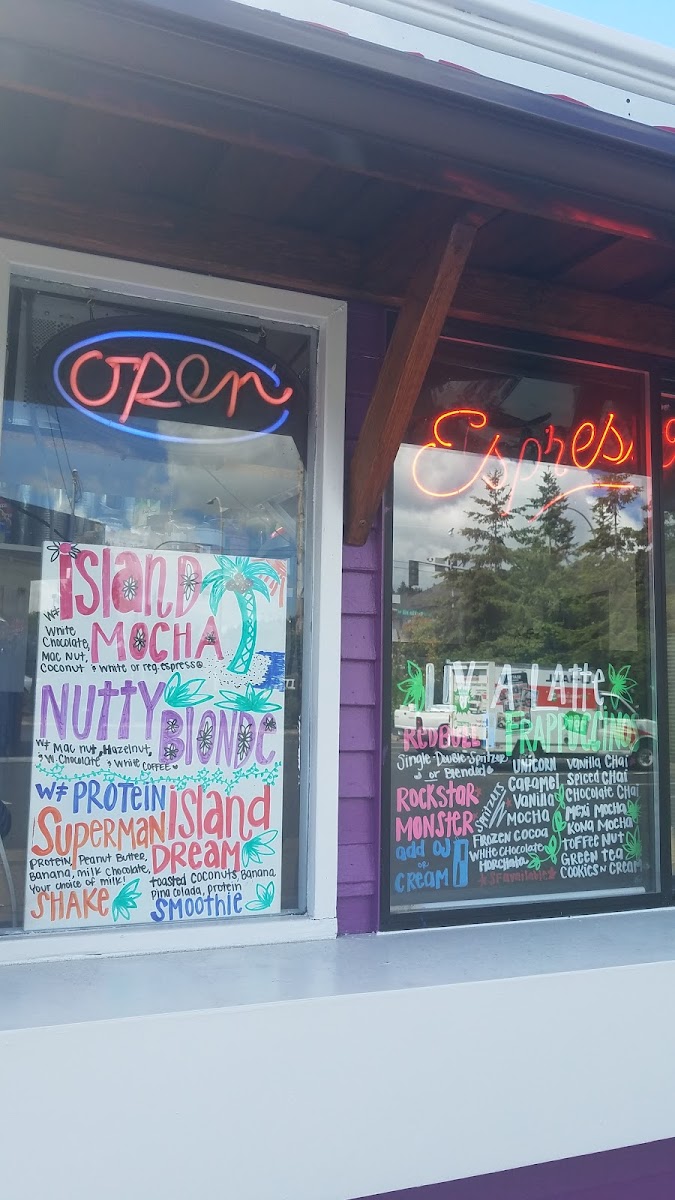 open
Espres
ISLAND
MOCHA
w/ White
Chocolate,
Mac Nut,
Coconut & White or reg. espresso
NUTTY
BLONDE
w/ Mac Nut, Hazelnut,
W. Chocolate & White Coffee
w/ PROTEIN
Superman
Protein, Peanut Butter,
Banana, Milk Chocolate,
Your choice of milk!
SHAKE
Island
DREAM
toasted coconuts, Banana,
Pina Colada, protein
SMOOTHIE
LIV A Latte
REDBULL
Single Double Spritzer
or Blended
ROCKSTAR
MONSTER
add OJ
or
CREAM
SPRITZERS
FRAPPUCCINO
UNICORN
CARAMEL
Vanilla
MOCHA
FROZEN COCOA
White Chocolate
Horchata
*SF available*
Vanilla Chai
Spiced Chai
Chocolate Chai
Mexi Mocha
Kona Mocha
Toffee Nut
Green Tea
Cookies N Cream